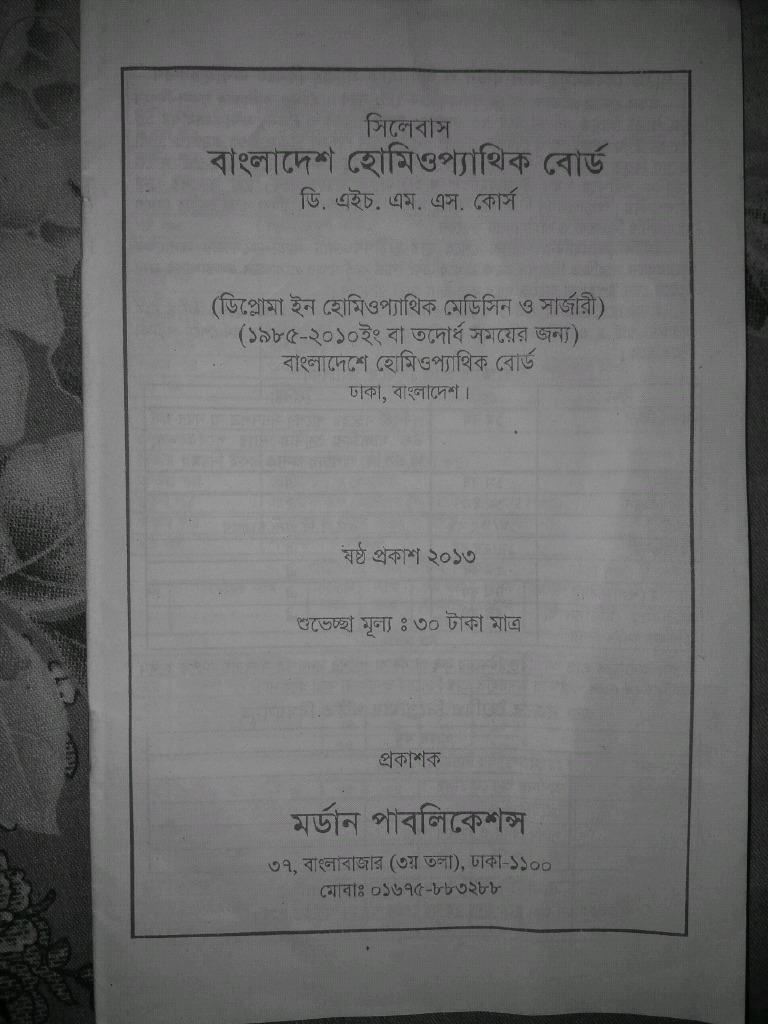 সিলেবাস
বাংলাদেশ হোমিওপ্যাথিক বোর্ড
ডি. এইচ. এম. এস. কোর্স
(ডিপ্লোমা ইন হোমিওপ্যাথিক মেডিসিন ও সার্জারী)
(১৯৮৫-২০১০ইং বা তদোর্ধ সময়ের জন্য)
বাংলাদেশে হোমিওপ্যাথিক বোর্ড
ঢাকা, বাংলাদেশ।
ষষ্ঠ প্রকাশ ২০১৩
শুভেচ্ছা মূল্য ঃ ৩০ টাকা মাত্র
প্রকাশক
মর্ডান পাবলিকেশন্স
৩৭, বাংলাবাজার (৩য় তলা), ঢাকা-১১০০
মোবাঃ ০১৬৭৫-৮৮৩২৮৮